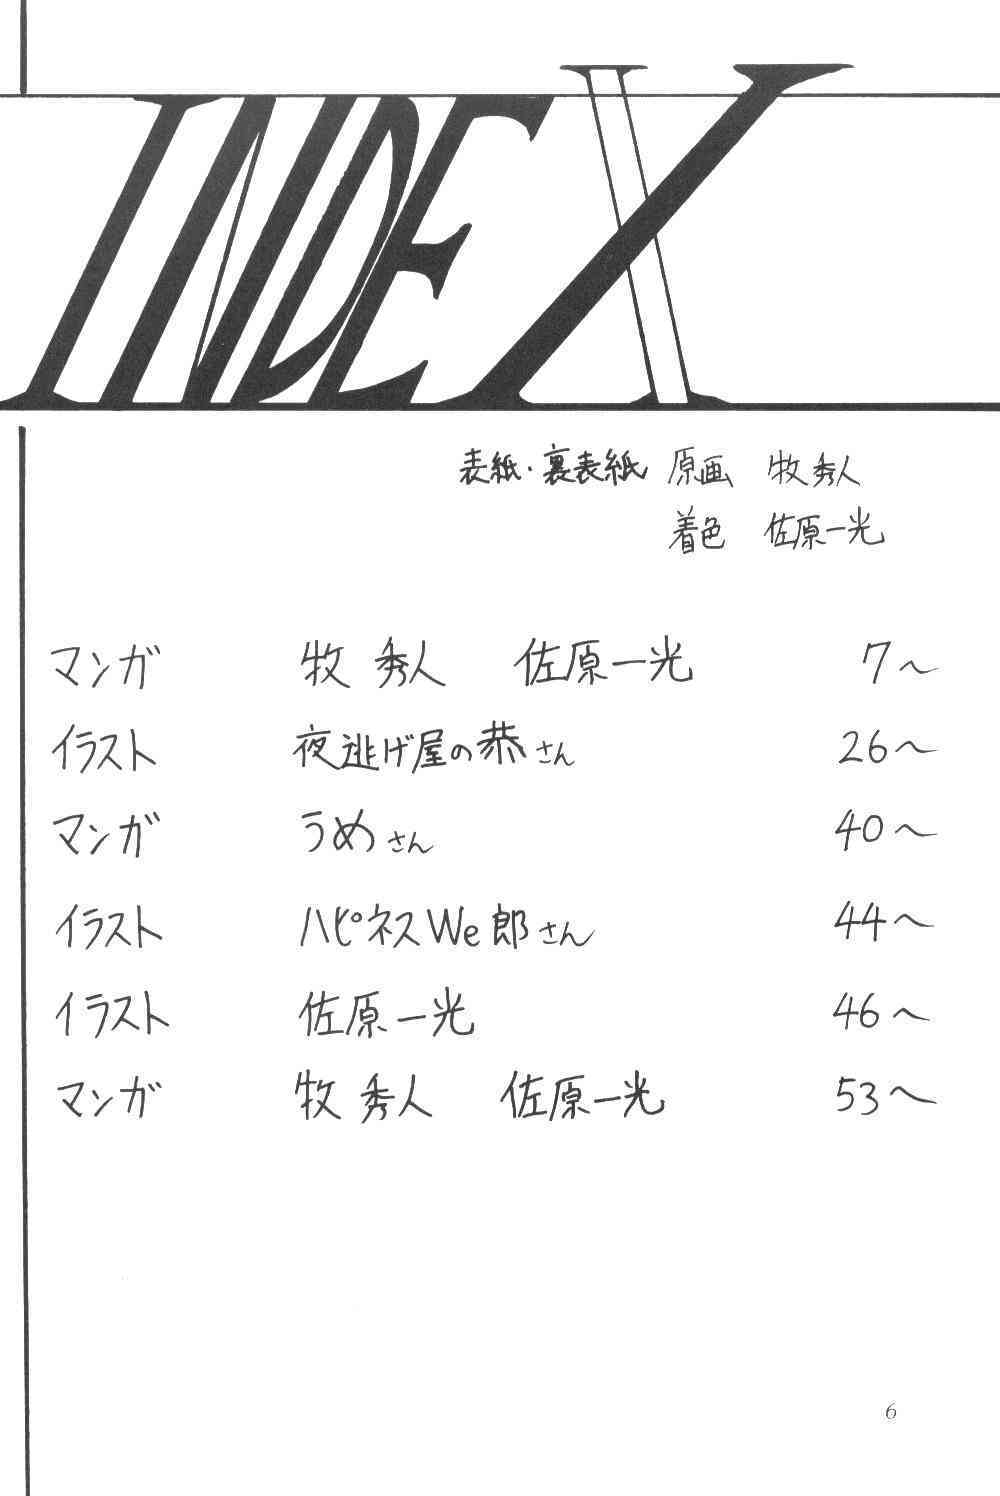 INDEX
表紙・裏表紙 原画 牧 秀人
着色 佐原一光
マンガ 牧 秀人 佐原一光 7〜
イラスト 夜逃げ屋の恭さん 26〜
マンガ うめさん 40〜
イラスト ハピネスWe郎さん 44〜
イラスト 佐原一光 46〜
マンガ 牧 秀人 佐原一光 53〜
6